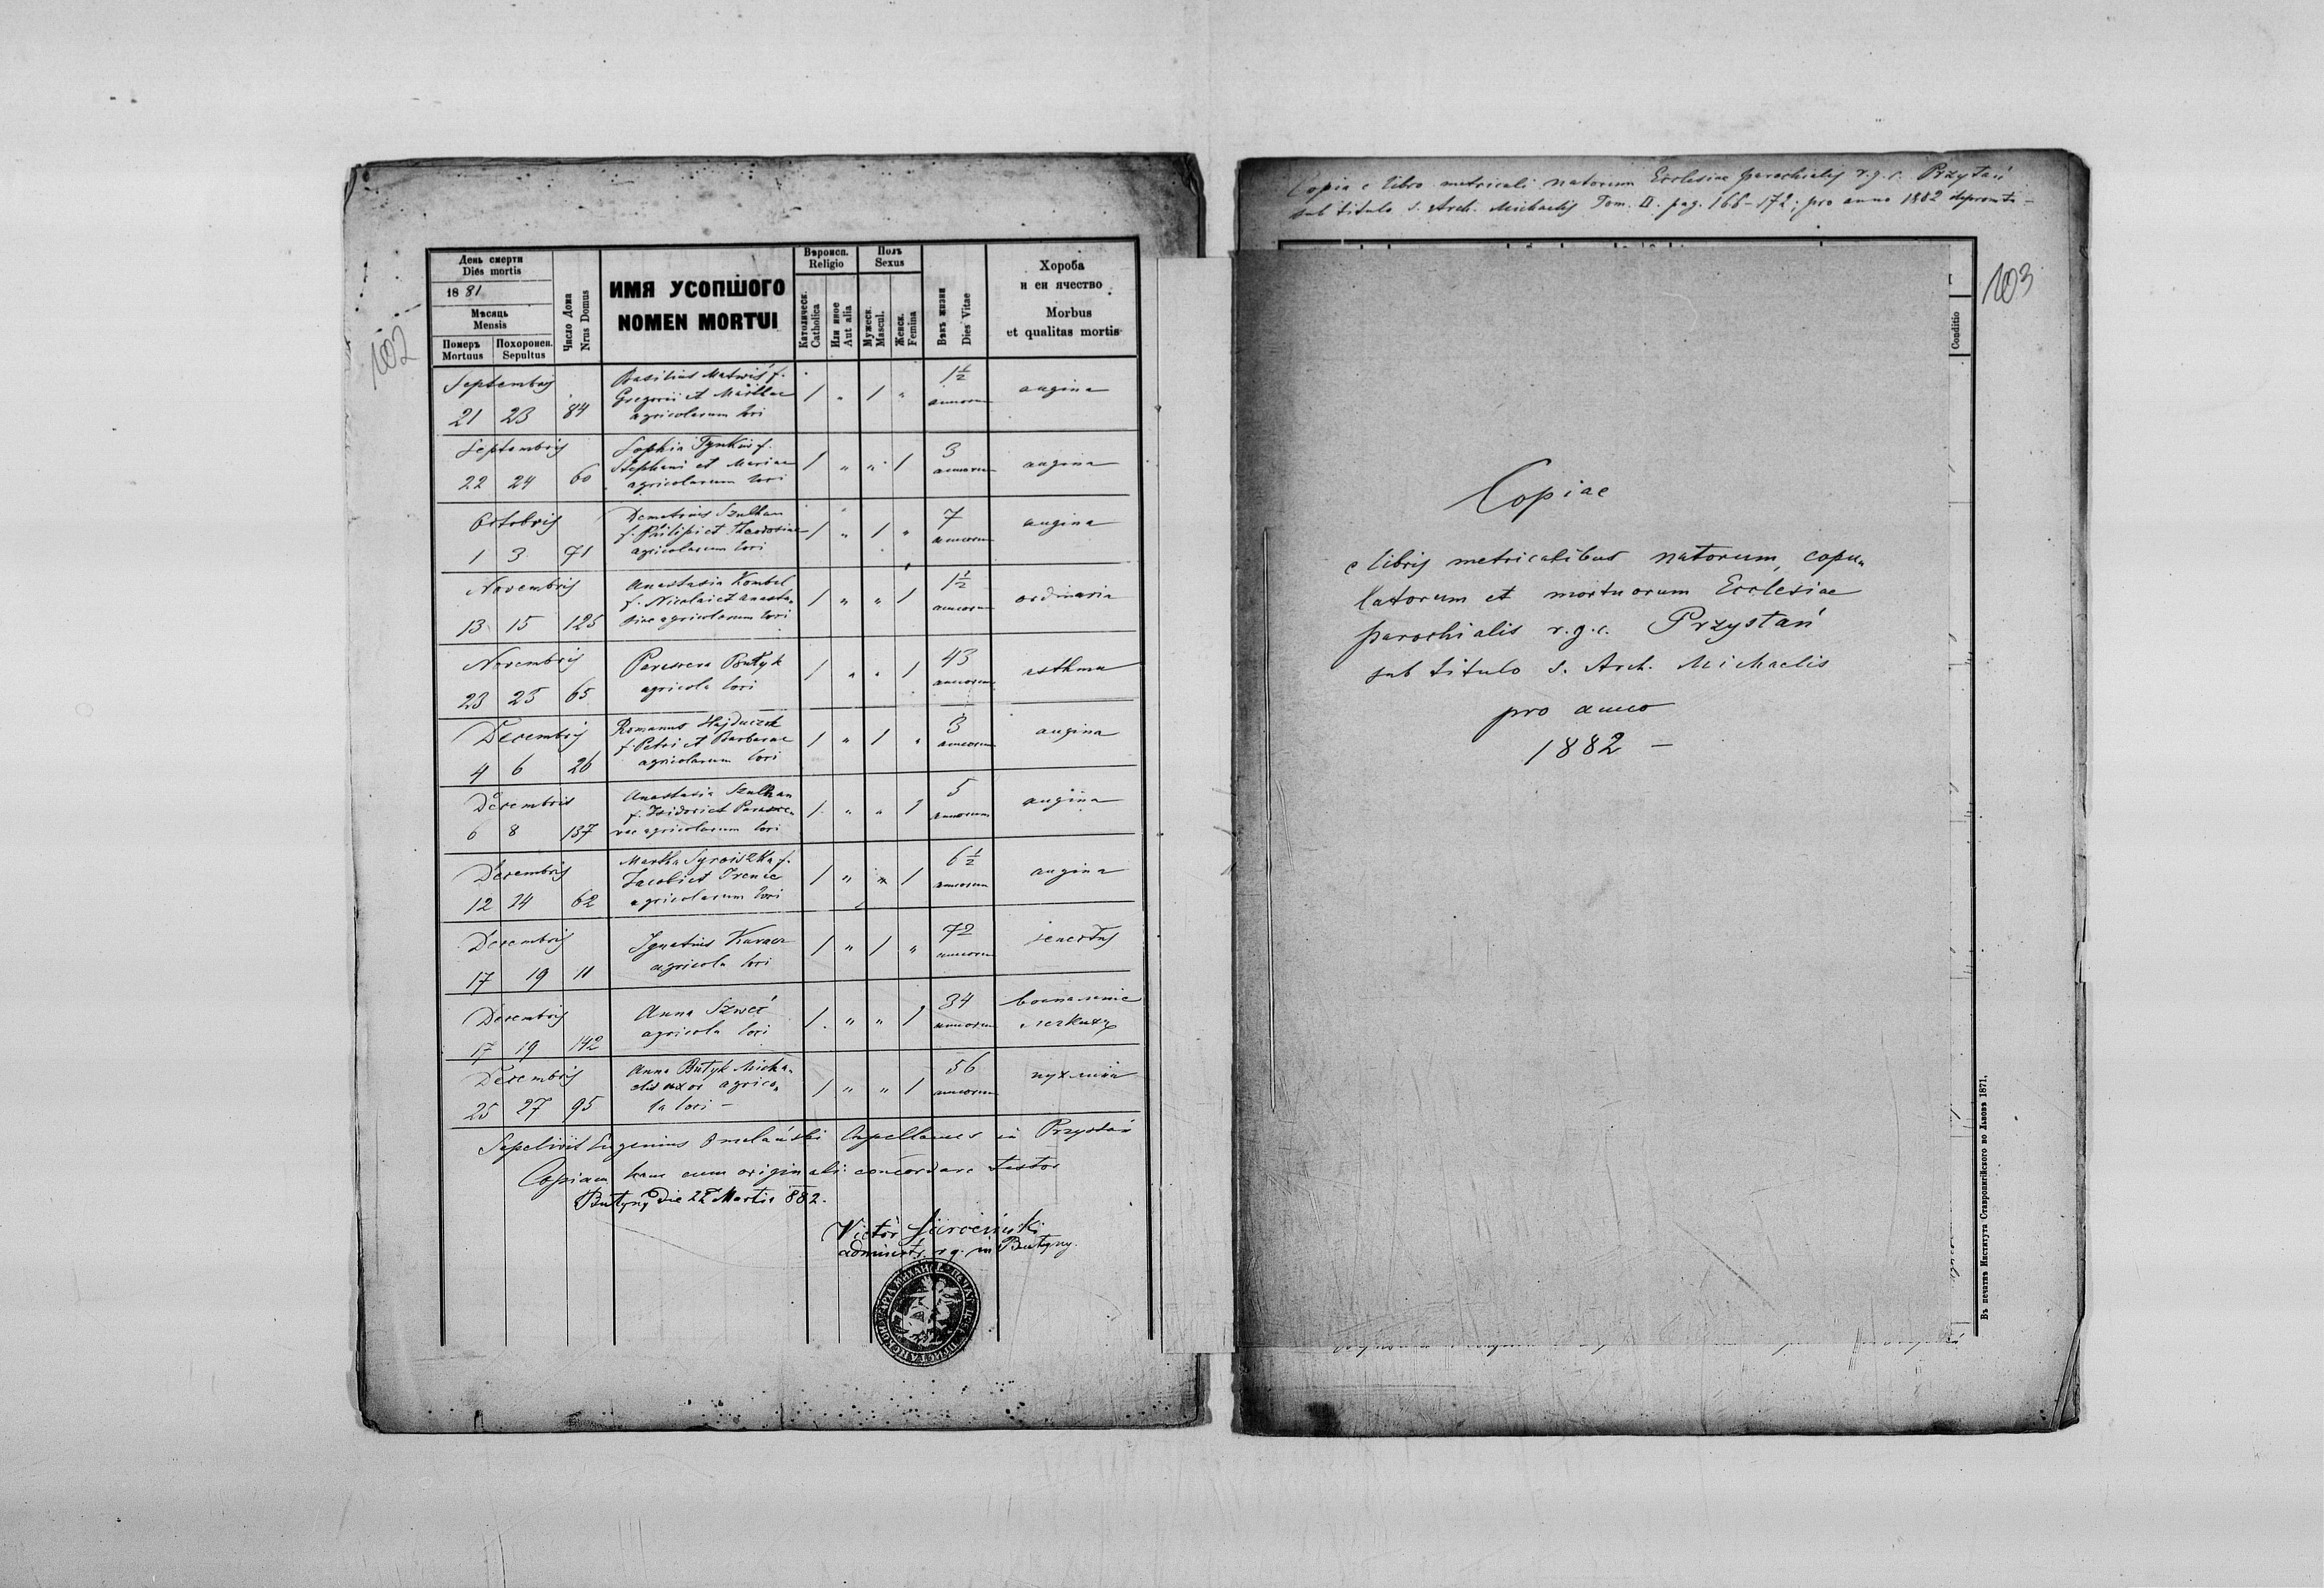 102
День смерти
Dies mortis
1881
Мѣсяць
Mensis
Померъ
Mortuus
Похоронен.
Sepultus
Число Дома
Nrus Domus
ИМЯ УСОПШОГО
NOMEN MORTUI
Вѣроисп.
Religio
Католическ.
Catholica
Или иное
Aut alia
Полъ
Sexus
Мужеск.
Mascul.
Женск.
Femina
Вѣкъ жизни
Dies Vitae
Хороба
и еи ячество
Morbus
et qualitas mortis
Septembris
21 23 84
Basilius Matwis f.
Gregorii et Marthae
agricolarum loci
1 " 1 "
1 1/2
annorum
angina
Septembris
22 24 60
Sophia Tymkus f.
Stephani et Mariae
agricolarum loci
1 " " 1
3
annorum
angina
Octobris
1 3 71
Demetrius Szulhan
f. Philipi et Theodosiae
agricolarum loci
1 " 1 "
7
annorum
angina
Novembris
13 15 125
Anastasia Kombel
f. Nicolai et Anasta„
siae agricolarum loci
1 " " 1
1 1/2
annorum
ordinaria
Novembris
23 25 65
Parascera Butyk
agricola loci
1 " " 1
43
annorum
asthma
Decembris
4 6 26
Romanus Hajduczok
f. Petri et Barbarae
agricolarum loci
1 " 1 "
3
annorum
angina
Decembris
6 8 137
Anastasia Szulhan
f. Isidori et Parasce„
vae agricolarum loci
1 " " 1
5
annorum
angina
Decembris
12 14 62
Martha Syroiszka f.
Jacobi et Irenae
agricolarum loci
1 " " 1
6 1/2
annorum
angina
Decembris
17 19 11
Ignatius
agricola loci
1 " 1 "
72
annorum
senectus
Decembris
17 19 142
Anna Szweć
agricola loci
1 " " 1
34
annorum
Decembris
25 27 95
Anna Butyk Micha„
elis uxor agrico„
la loci –
1 " " 1
56
annorum
Sepelivit Eugenius Omelański Capellanus in Przystań
Copiam hanc cum originali concordare testor
Butyny die 22 Martii 882.
Victor
administr. r.g. in Butyny.
Copia e libro metricali natorum Ecclesiae parochialis r.g.c. Przystań
sub titulo S. Arch. Michaelis Tom. II. pag. 168-172; pro anno 1882 deprompti –
103
Conditio
Copiae
e libris metricalibus natorum, copu„
latorum et mortuorum Ecclesiae
parochialis r.g.c. Przystań
sub titulo S. Arch. Michaelis
pro anno
1882 –
Въ печатнѣ Института Ставропигійского во Львовѣ 1871.